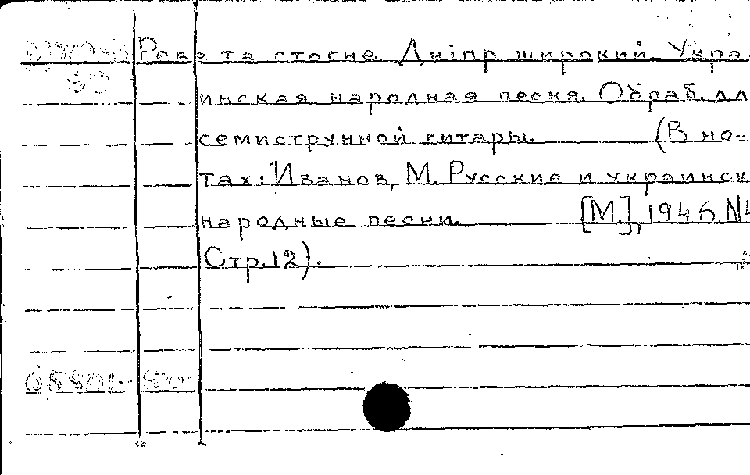 Реве та стогне Дніпр широкий. Укра-
инская народная песня. Обраб. дл
семиструнной гитары. (В но-
тах: Иванов, М. Русские и украинск
народные песни. [М.], 1946 №
Стр. 12).